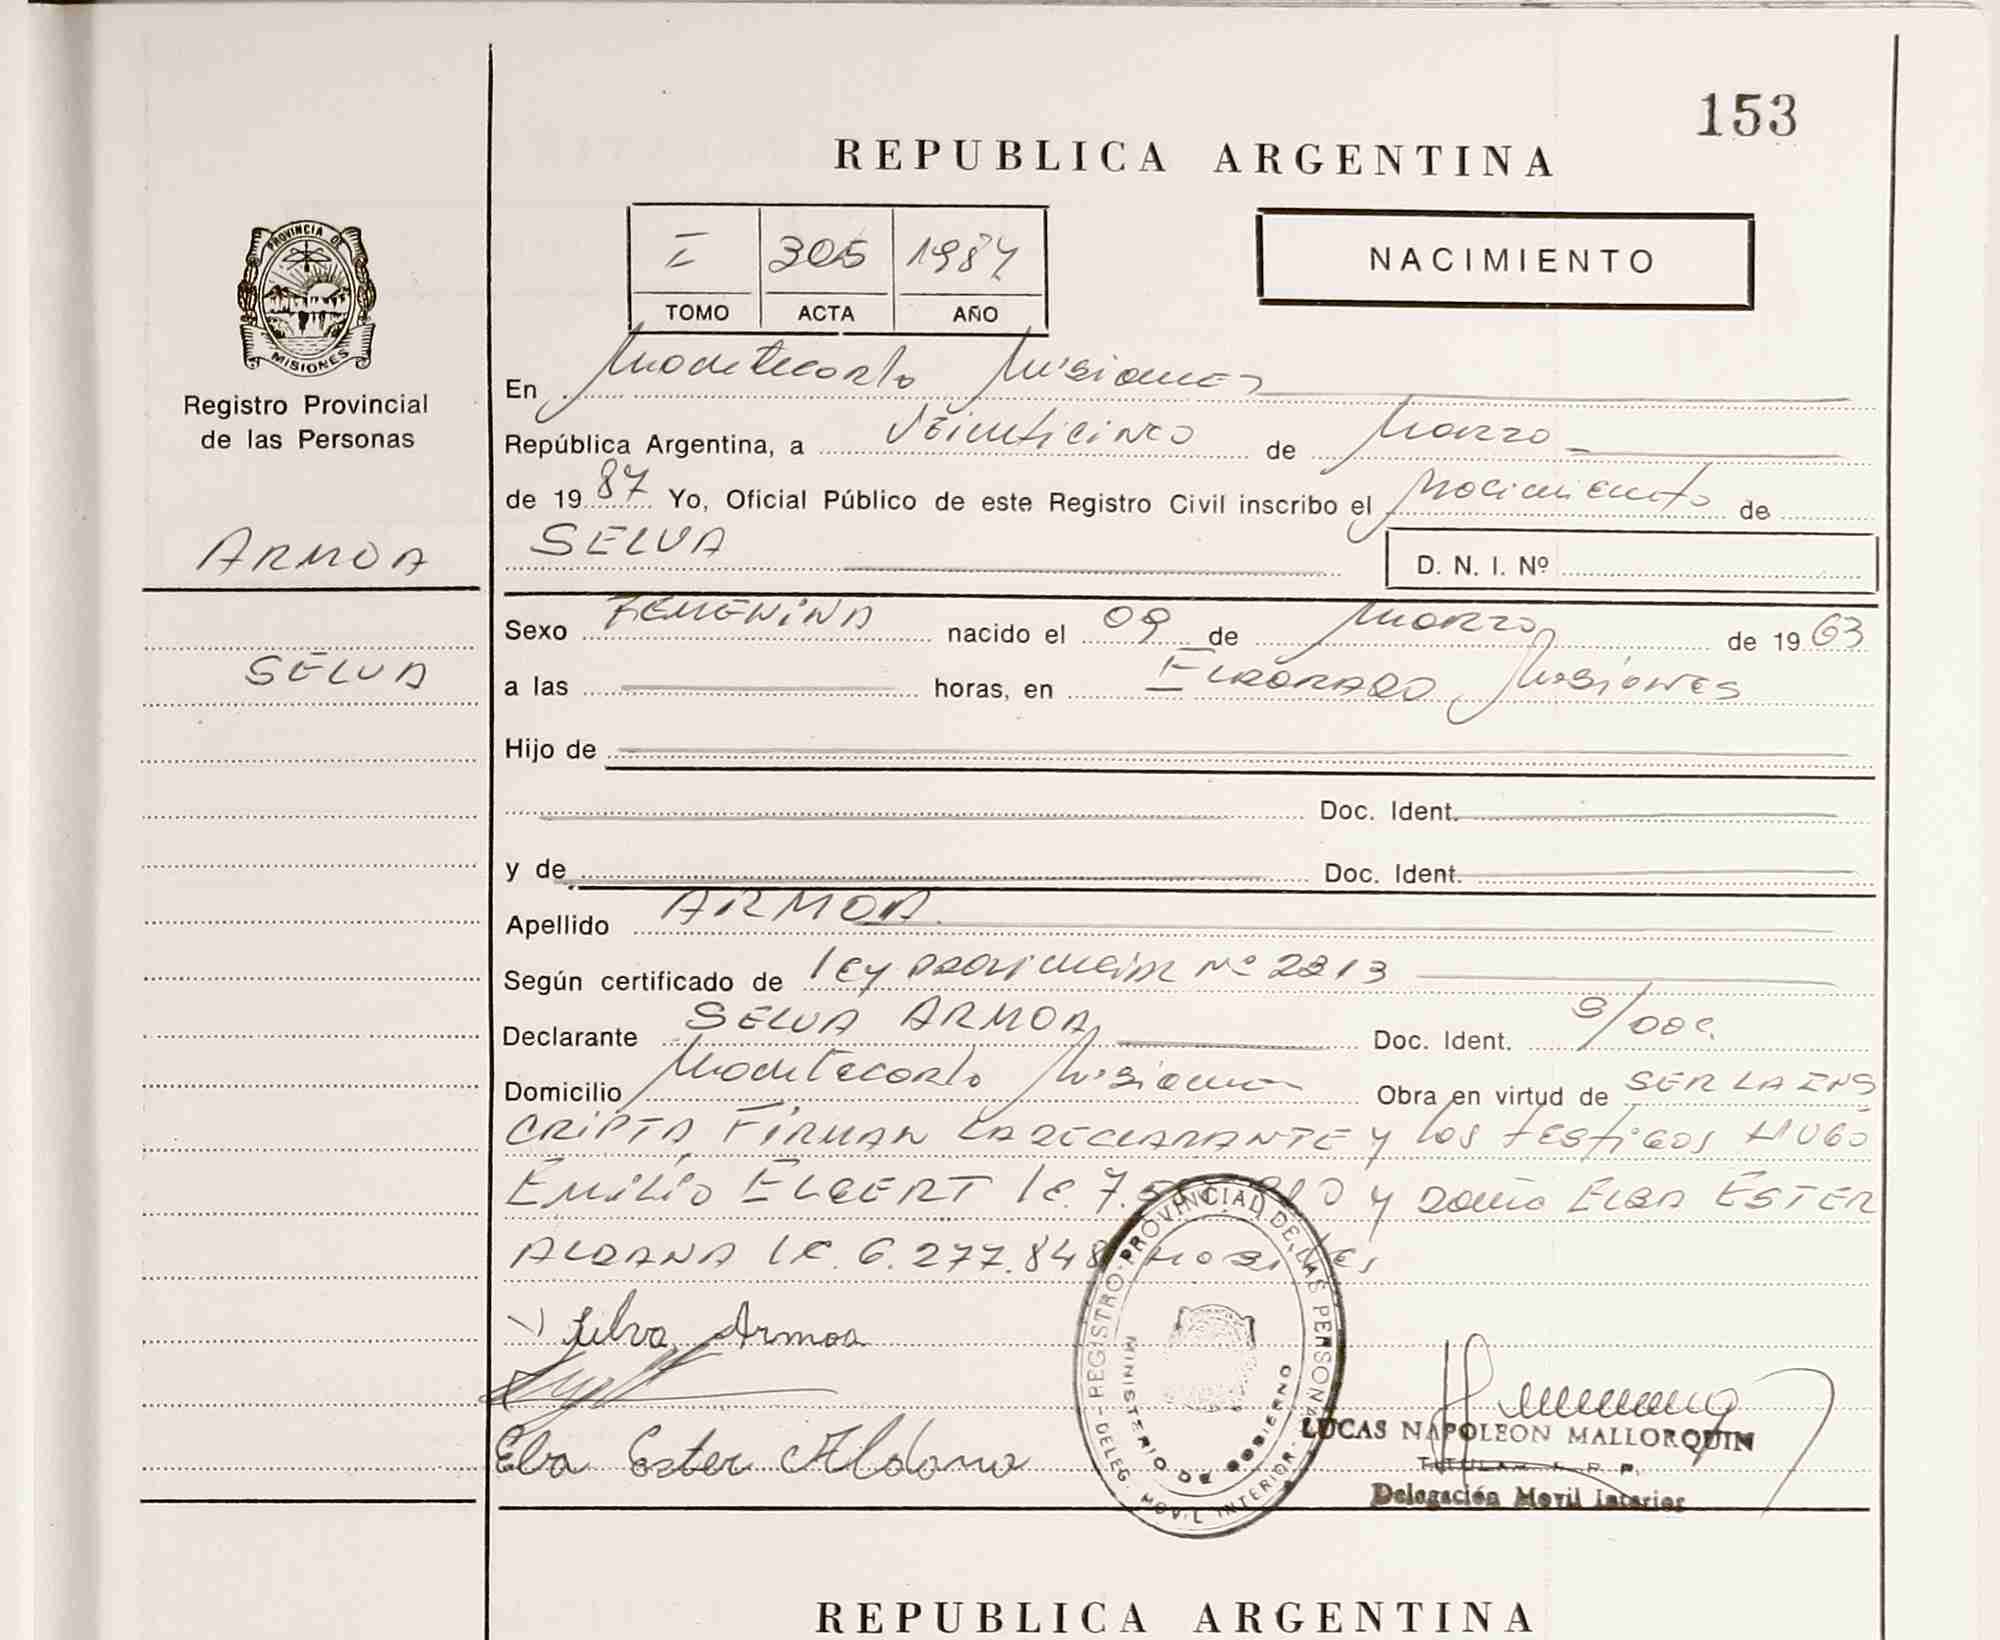 153
REPUBLICA ARGENTINA
I 305 1987
TOMO ACTA AÑO
NACIMIENTO
PROVINCIA DE
MISIONES
Registro Provincial
de las Personas
ARMOA
SELVA
En Montecarlo Misiones
República Argentina, a Veinticinco de Marzo
de 19 87 Yo, Oficial Público de este Registro Civil inscribo el Nacimiento de
SELVA
D. N. I. Nº
Sexo FEMENINA nacido el 09 de Marzo de 19 63
a las horas, en ELDORADO Misiones
Hijo de
Doc. Ident.
y de Doc. Ident.
Apellido ARMOA
Según certificado de ley PROVINCIAL Nº 2213
Declarante SELVA ARMOA Doc. Ident. S/DOC.
Domicilio Montecarlo Misiones Obra en virtud de SER LA INS
CRIPTA FIRMAN LA DECLARANTE y los testigos HUGO
EMILIO ELGERT l.e. 7. y doña ELBA ESTER
ALDANA l.c. 6.277.848 HABILES
Selva Armoa
Elba Ester Aldana
REGISTRO PROVINCIAL DE LAS PERSONAS
- DELEG. MOVIL INTERIOR -
MINISTERIO DE GOBIERNO
LUCAS NAPOLEON MALLORQUIN
TITULAR R.P.P.
Delegación Movil Interior
REPUBLICA ARGENTINA